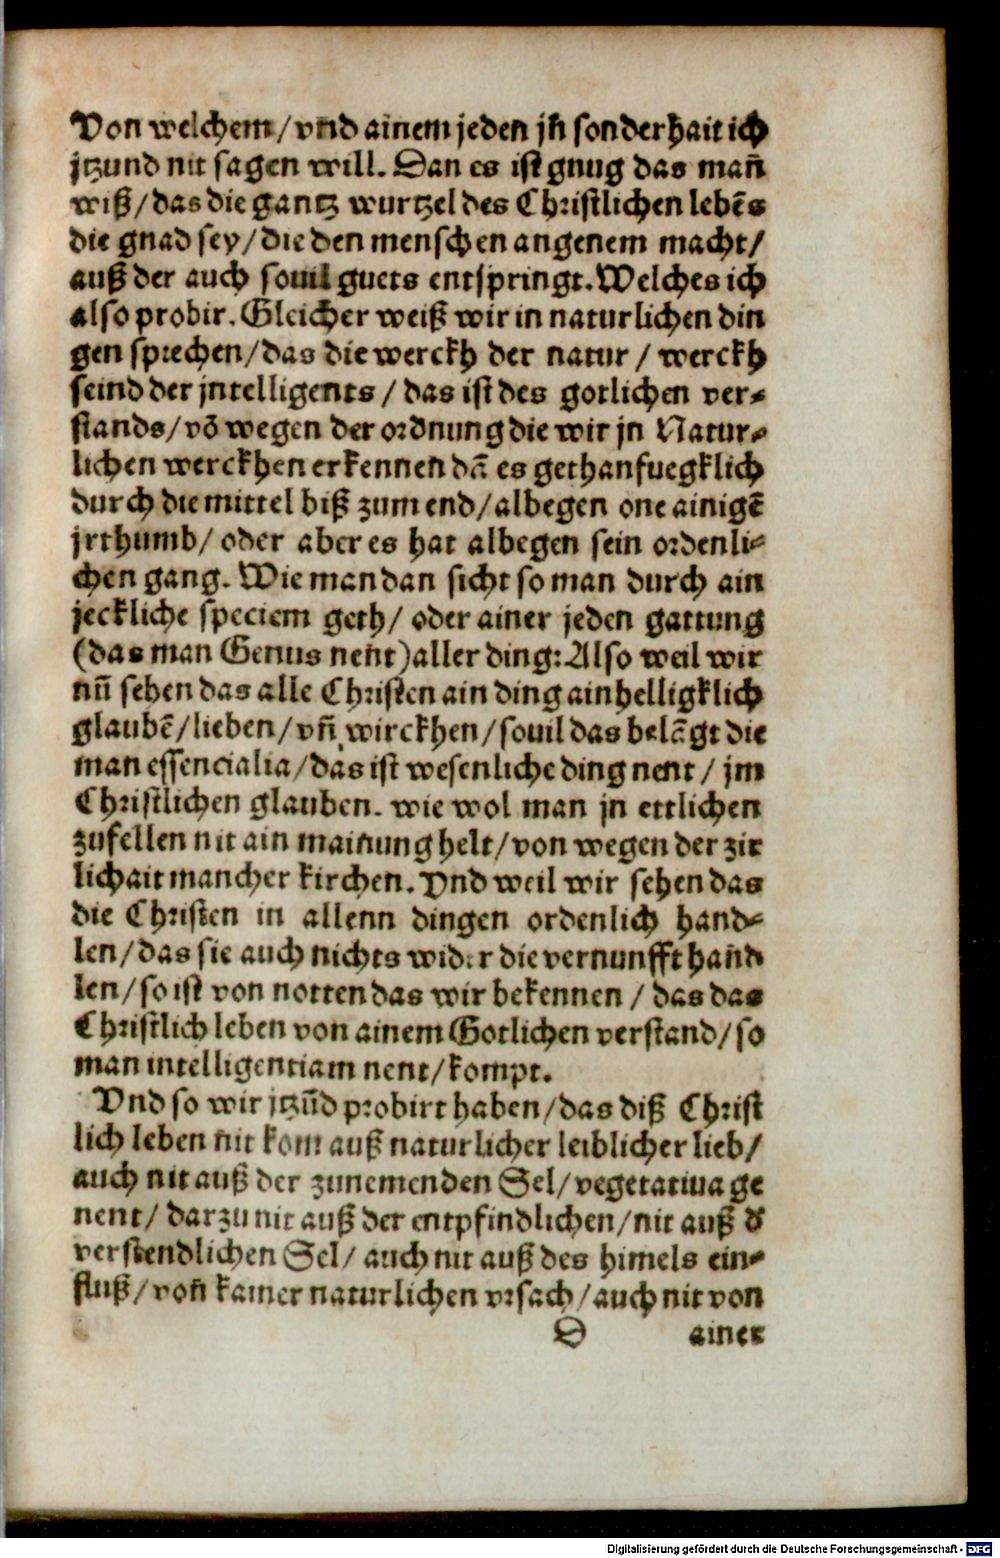 Von welchem/vnd ainem jeden jn̄ sonderhait ich
jtzund nit sagen will. Dan es ist gnug das man̄
wiß/das die gantz wurtzel des Christlichen lebēs
die gnad sey/die den menschen angenem macht/
auß der auch souil guets entspringt. Welches ich
also probir. Gleicher weiß wir in naturlichen din
gen sprechen/das die werckh der natur/ werckh
seind der jntelligents/ das ist des gotlichen ver-
stands/vō wegen der ordnung die wir jn Natur-
lichen werckhen erkennen dā es geth ansuegklich
durch die mittel biß zum end/albegen one ainigē
jrthumb/ oder aber es hat albegen sein ordenli-
chen gang. Wie man dan sicht so man durch ain
jeckliche speciem geth/ oder ainer jeden gattung
(das man Genus nent) aller ding: Also weil wir
nū sehen das alle Christen ain ding ainhelligklich
glaubē/lieben/vn̄ wirckhen/souil das belāgt die
man essencialia/das ist wesenliche ding nent/ jm
Christlichen glauben. wie wol man jn ettlichen
zufellen nit ain mainung helt/von wegen der zir
lichait mancher kirchen. Vnd weil wir sehen das
die Christen in allenn dingen ordenlich hand-
len/das sie auch nichts wider die vernunfft hand
len/so ist von notten das wir bekennen/ das das
Christlich leben von ainem Gotlichen verstand/so
man intelligentiam nent/kompt.
Vnd so wir jtzūd probirt haben/das diß Christ
lich leben nit kom auß naturlicher leiblicher lieb/
auch nit auß der zunemenden Sel/vegetatiua ge
nent/ darzu nit auß der entpfindlichen/nit auß d̄
verstendlichen Sel/ auch nit auß des himels ein-
fluß/von̄ kainer naturlichen vrsach/auch nit von
D ainer
Digitalisierung gefördert durch die Deutsche Forschungsgemeinschaft - DFG